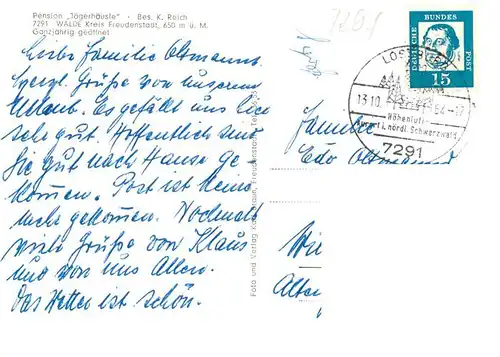 Pension „Jägerhäusle“ · Bes. K. Reich
7291 WÄLDE Kreis Freudenstadt, 650 m ü. M.
Ganzjährig geöffnet
Liebe Familie Oltmanns.
Herzl. Grüße von unserem
Urlaub. Es gefällt uns hier
sehr gut. Hoffentlich sind
Sie gut nach Hause ge-
kommen. Post ist keine
mehr gekommen. Nochmals
viele Grüße von Klaus
und von uns Allen.
Das Wetter ist schön.
Foto und Verlag
Freudenstadt
7291
DEUTSCHE
BUNDES
POST
15
LOSS
13.10
64-17
Höhenluft-
kurort i. nördl. Schwarzwald
7291
Familie
Edo Oltmanns